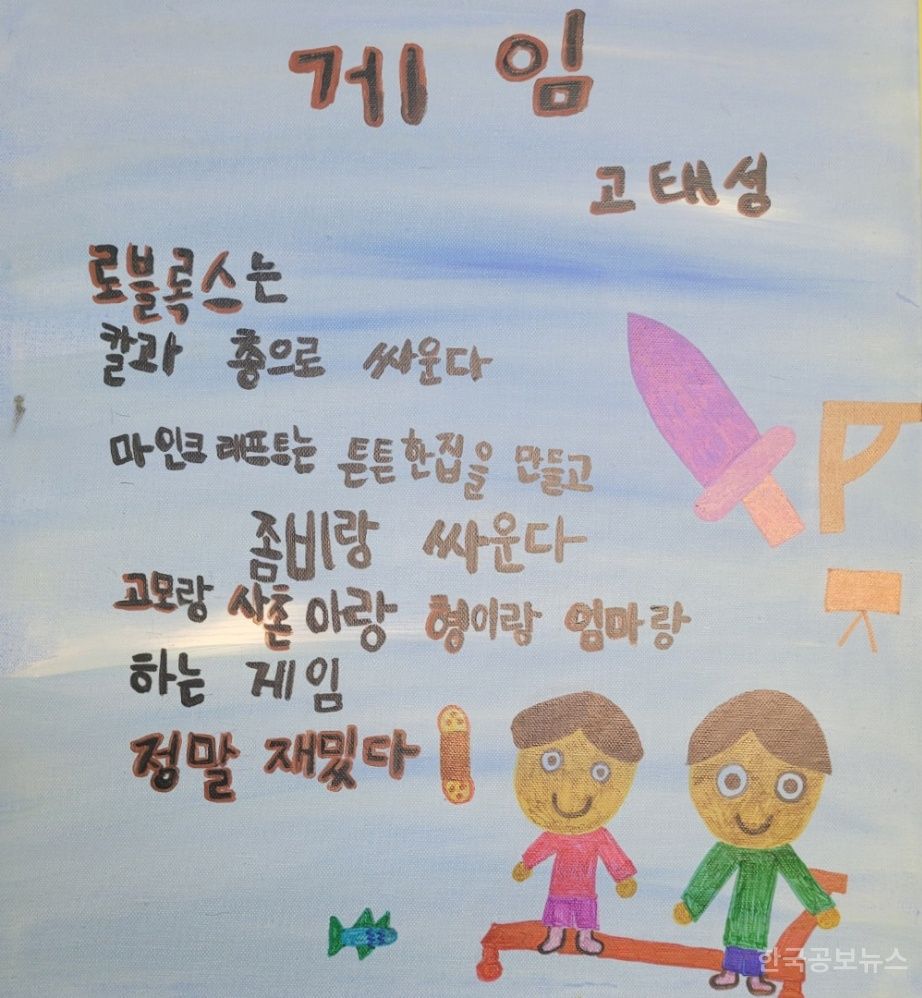 게임
고태성
로블록스는
칼과 총으로 싸운다
마인크래프트는 튼튼한집을 만들고
좀비랑 싸운다
고모랑 사촌아랑 형이랑 엄마랑
하는 게임
정말 재밌다
한국공보뉴스